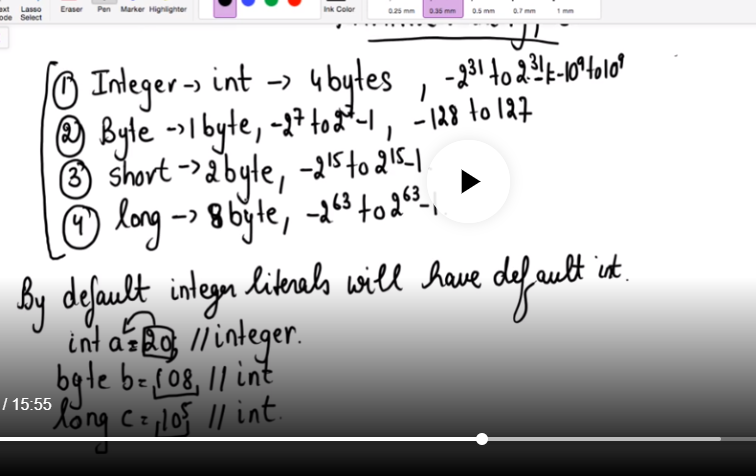 Lasso Select
Eraser
Pen
Marker
Highlighter
Ink Color
0.25 mm
0.35 mm
0.5 mm
0.7 mm
1 mm
① Integer → int → 4 bytes , -2³¹ to 2³¹-1 -10⁹ to 10⁹
② Byte → 1 byte, -2⁷ to 2⁷-1, -128 to 127
③ short → 2 byte, -2¹⁵ to 2¹⁵-1
④ long → 8 byte, -2⁶³ to 2⁶³-1
By default integer literals will have default int.
int a = 20; // integer.
byte b = 108, // int
long c = 10⁵, // int.
/ 15:55